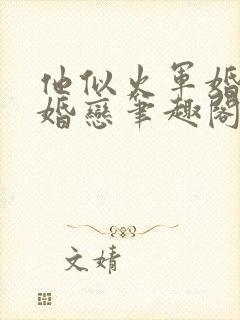 他似火军婚
婚恋笔趣阁
文婧